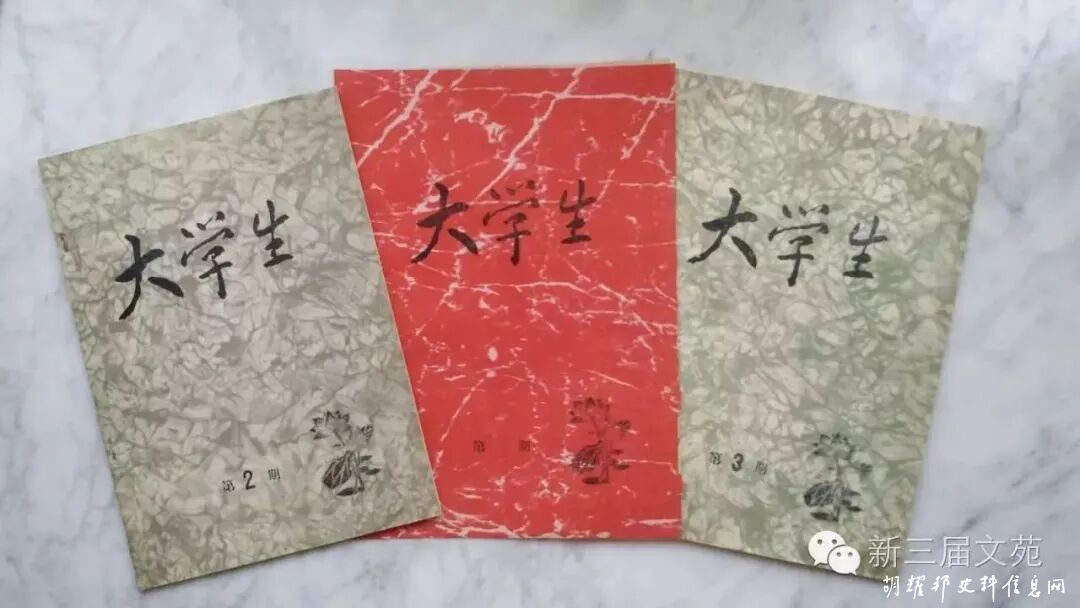 大学生
第2期
大学生
第 期
大学生
第3期
新三届文苑
胡耀邦史料信息网